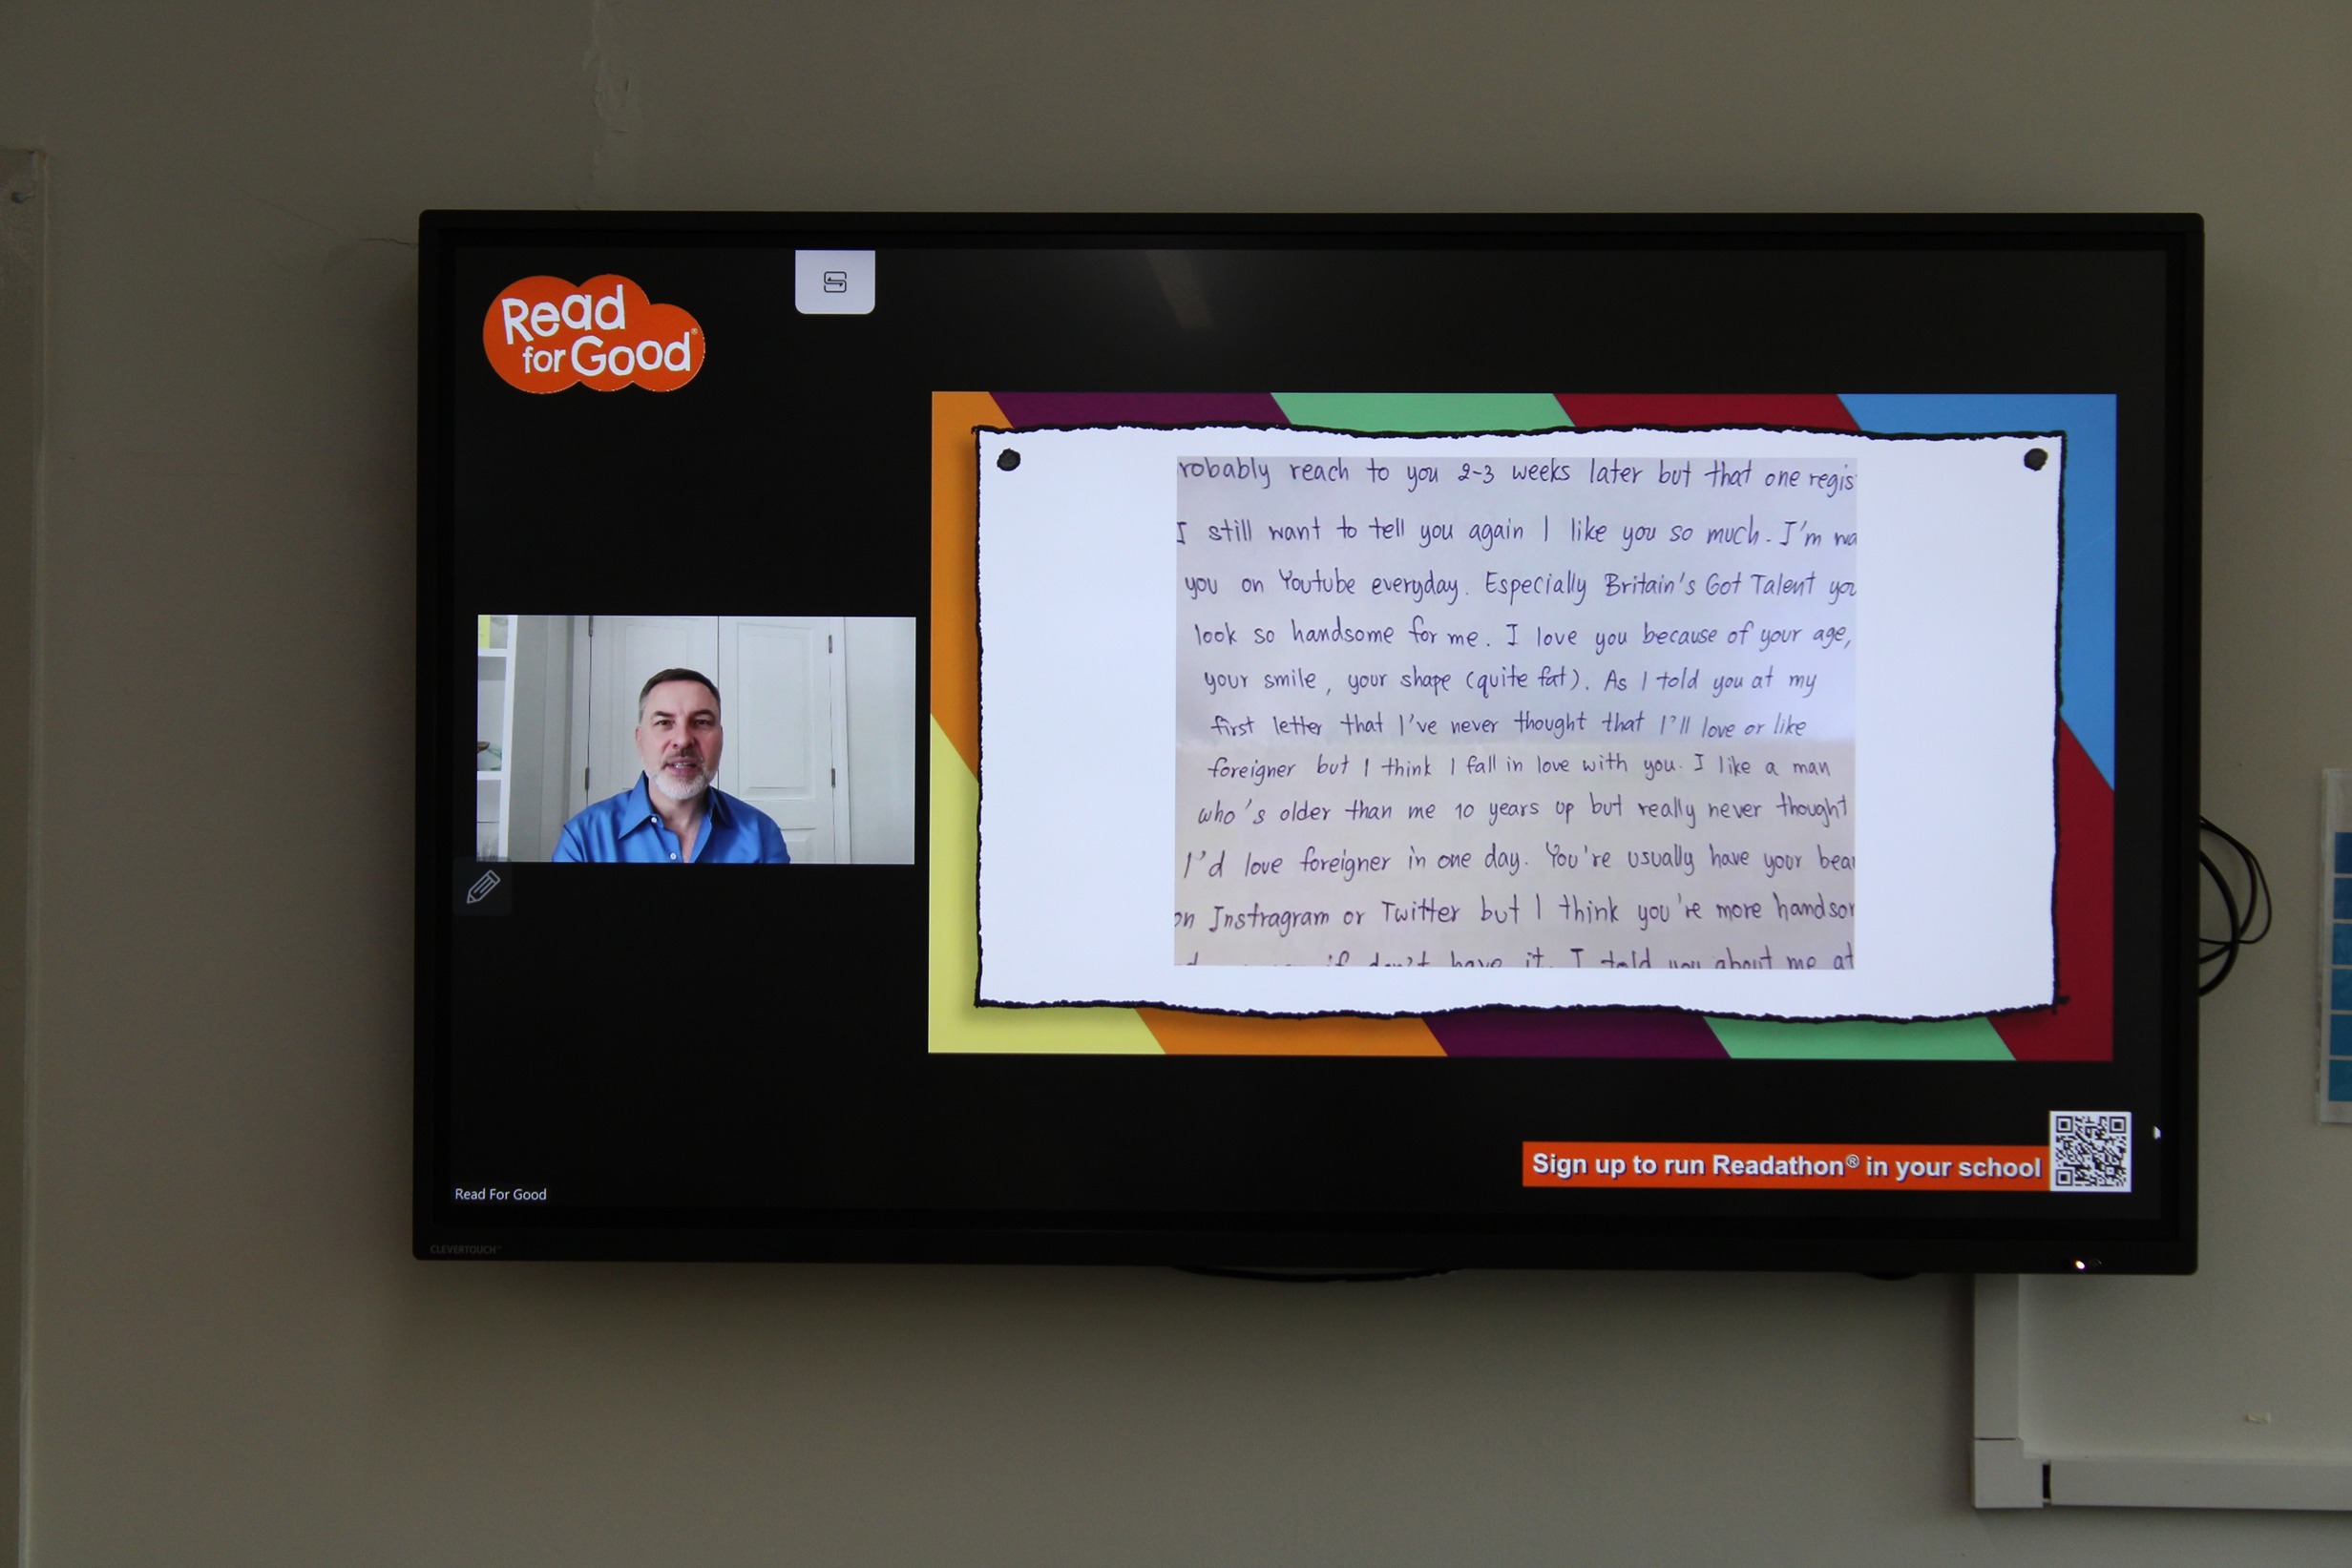 Read
for Good®
robably reach to you 2-3 weeks later but that one regis
I still want to tell you again I like you so much. I'm wa
you on Youtube everyday. Especially Britain's Got Talent you
look so handsome for me. I love you because of your age,
your smile, your shape (quite fat). As I told you at my
first letter that I've never thought that I'll love or like
foreigner but I think I fall in love with you. I like a man
who's older than me 10 years up but really never thought
I'd love foreigner in one day. You're usually have your bear
on Instragram or Twitter but I think you're more handsom
if don't have it. I told you about me at
Sign up to run Readathon® in your school
Read For Good
CLEVERTOUCH™